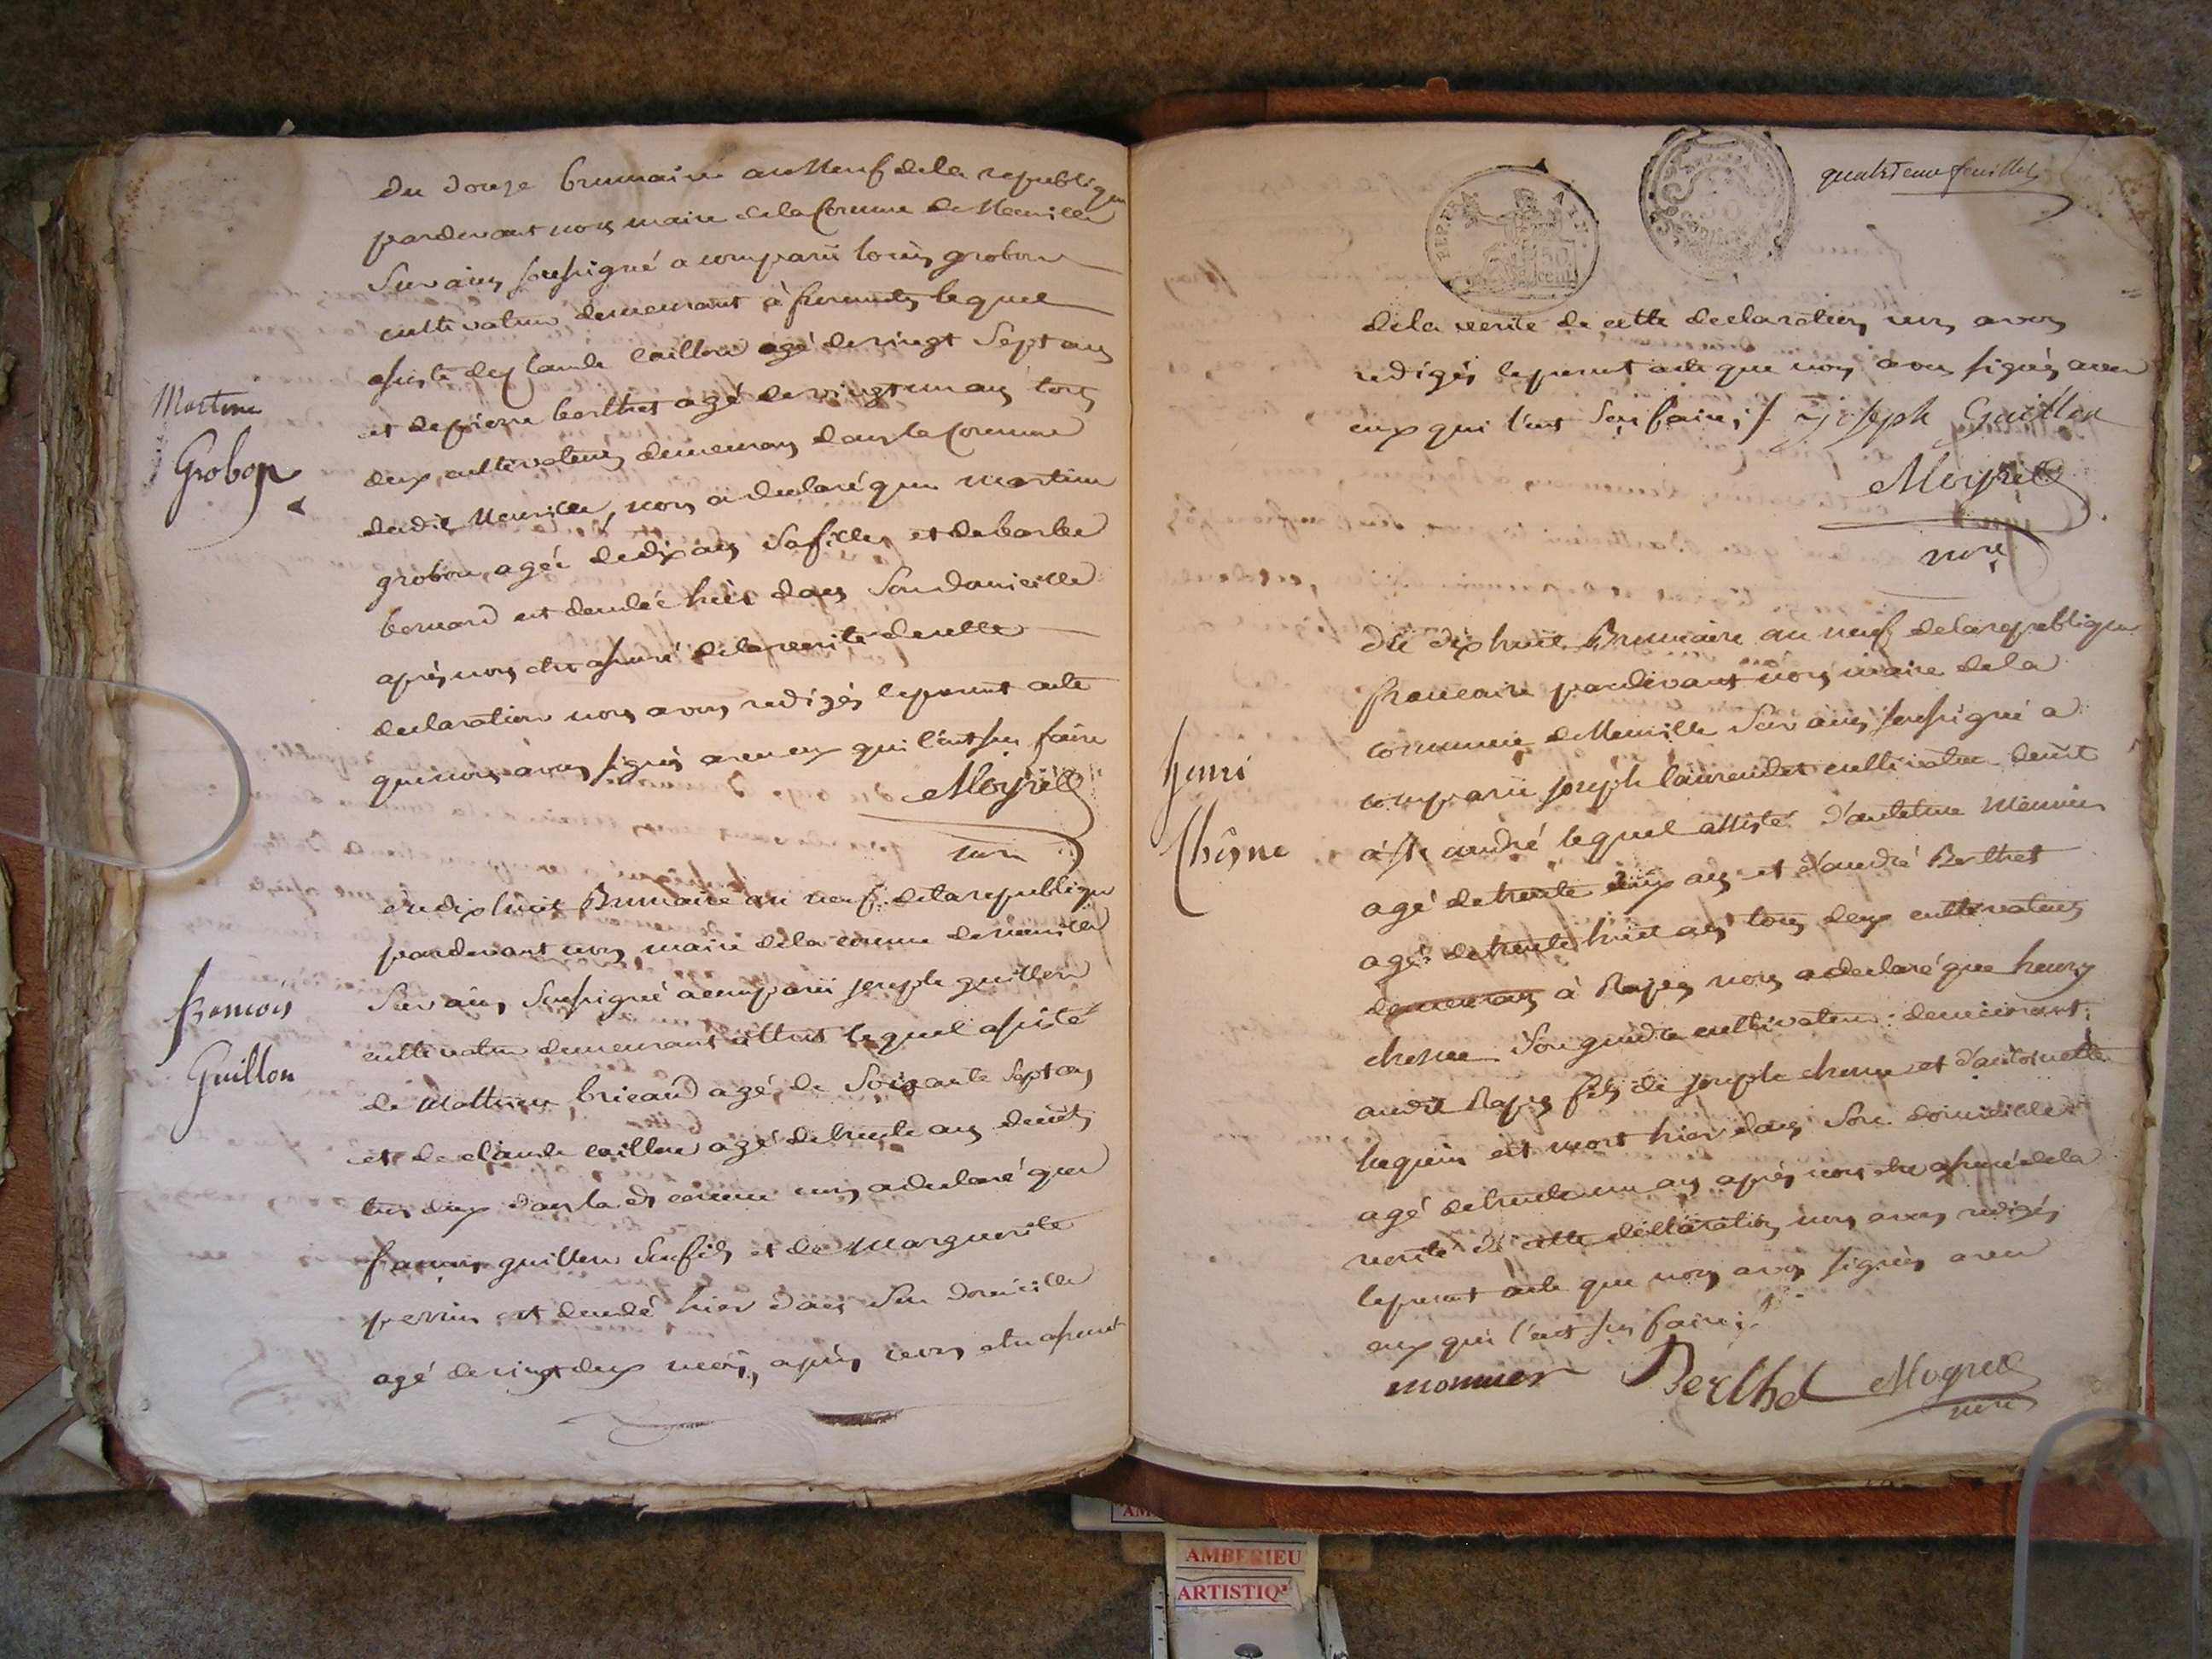 du douze brumaire an Neuf de la republique
pardevant nous maire de la Comune de Neuville
Sur ain, soussigné a comparü louis grobon
cultivateur demeurant à fromente lequel
assisté de Claude caillon agé de vingt Sept ans
et de pierre berthet agé de vingt un ans tous
deux cultivateurs demeurans dans la Commune
dudit Neuville, nous a declaré que martine
grobon, agée de dix ans sa fille et de barbe
bernard est decedée hier dans Son domicille
après nous etre assuré de la verité de cette
declaration nous avons redigés le present acte
que nous avons signés avec eux qui l'ont su faire
Moyret
mre
Martine
Grobon
du dix huit Brumaire an neuf de la republique
pardevant nous maire de la comune de neuville
Sur ain, Soussigné a comparü joseph guillon
cultivateur demeurant lequel assisté
de Mathieu bricaud agé de Soixante Sept ans
et de claude caillon agé de trente ans demt
tous deux dans la de comune nous a declaré que
francois guillon Son fils et de Marguerite
perrin est decedé hier dans Son domicille
agé de vingt deux mois, après nous etre assuré
francois
Guillon
quatrieme feuillet
REP. FRA.
50
cent.
de la verité de cette declaration nous avons
redigés le present acte que nous avons signés avec
eux qui l'ont Sçu faire ;/. Joseph Guillon
Moyret
mre
du dix huit Brumaire an neuf de la republique
francaise pardevant nous maire de la
commune de Neuville Sur ain, soussigné a
comparü joseph laurendet cultivateur demt
à St andré lequel assisté d'antoine Monnier
agé de trente six ans et d'andré Berthet
agé de trente huit ans tous deux cultivateurs
demeurans à Rapes nous a declaré que henry
chesne Son gendre cultivateur demeurant
audit Rapes fils de joseph chesne et d'antoinette
est mort hier dans Son domicille
agé de trente un ans après nous etre assuré de la
verité de cette declaration nous avons redigés
le present acte que nous avons signés avec
eux qui l'ont su faire ;/.
monnier Berthet Moyret
mre
henri
Chesne
AMBERIEU
ARTISTIQ